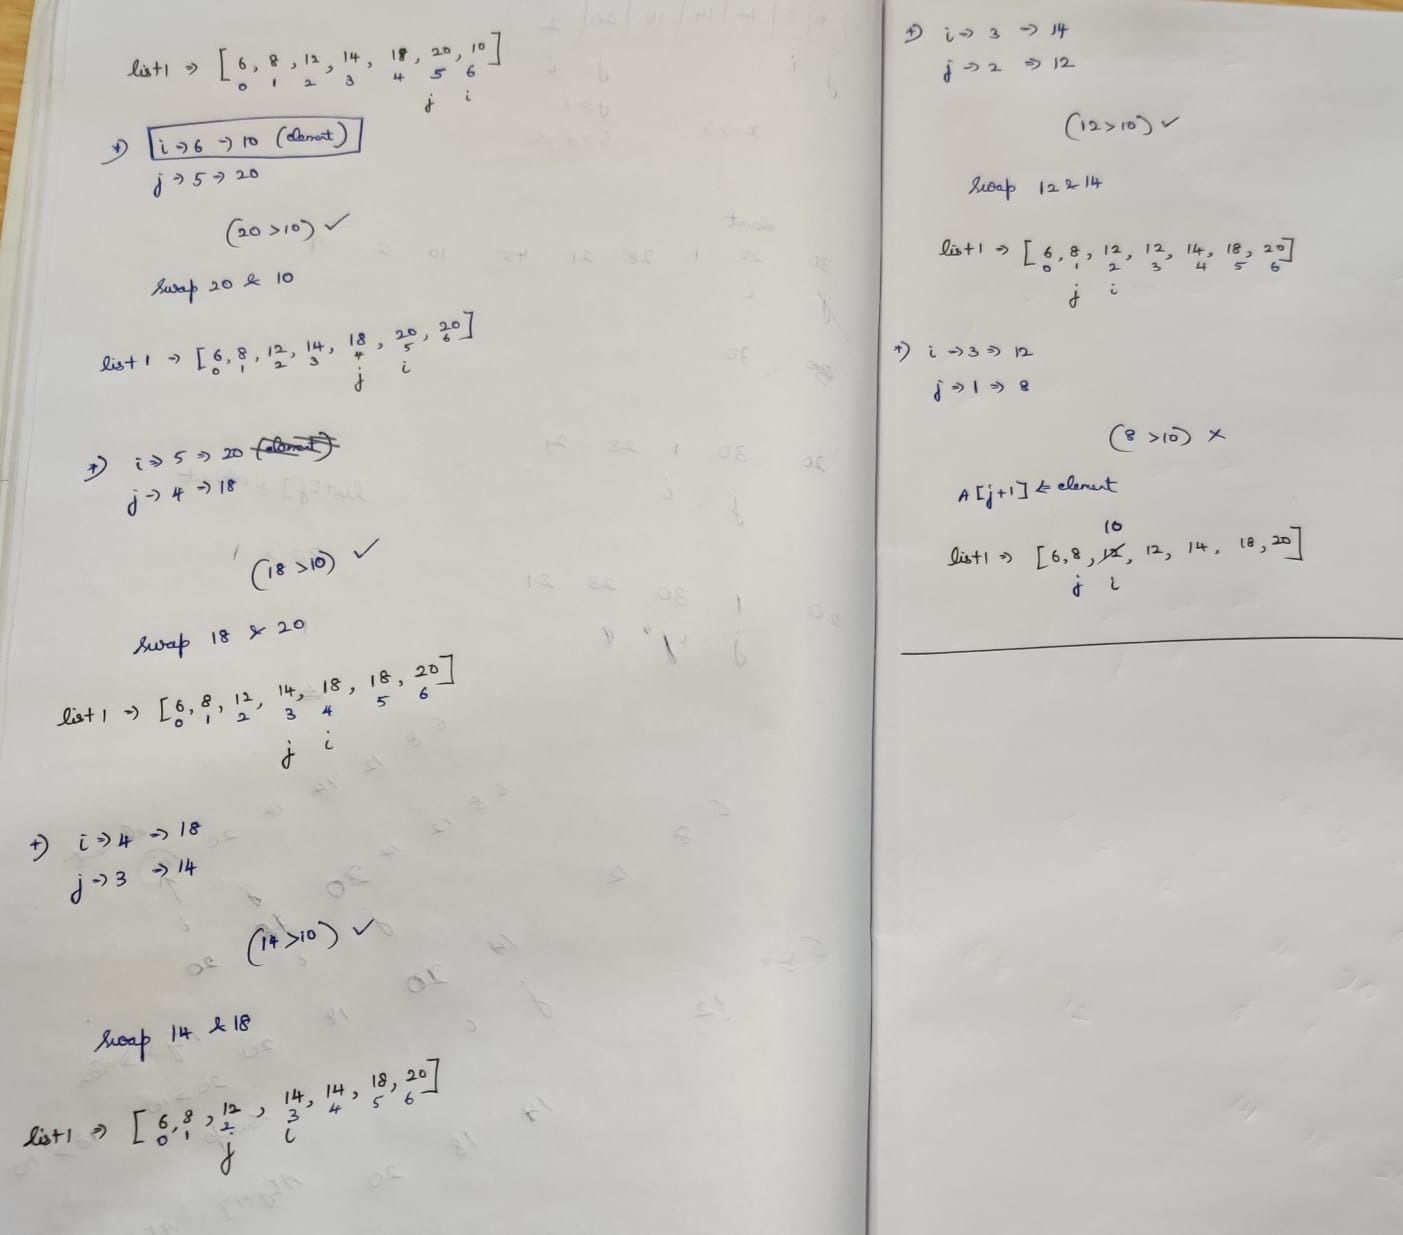 list1 ⇒ [6, 8, 12, 14, 18, 20, 10]
0 1 2 3 4 5 6
j i
*) i → 6 → 10 (element)
j → 5 → 20
(20 > 10) ✓
Swap 20 & 10
list 1 → [6, 8, 12, 14, 18, 20, 20]
0 1 2 3 4 5 6
j i
*) i ⇒ 5 ⇒ 20 (element)
j → 4 → 18
(18 > 10) ✓
Swap 18 & 20
list 1 ⇒ [6, 8, 12, 14, 18, 18, 20]
0 1 2 3 4 5 6
j i
*) i ⇒ 4 ⇒ 18
j → 3 ⇒ 14
(14 > 10) ✓
Swap 14 & 18
list1 ⇒ [6, 8, 12, 14, 14, 18, 20]
0 1 2 3 4 5 6
j i
*) i ⇒ 3 → 14
j → 2 ⇒ 12
(12 > 10) ✓
Swap 12 & 14
list1 ⇒ [6, 8, 12, 12, 14, 18, 20]
0 1 2 3 4 5 6
j i
*) i → 3 ⇒ 12
j ⇒ 1 ⇒ 8
(8 > 10) ×
A[j+1] ← element
10
list1 ⇒ [6, 8, 12, 12, 14, 18, 20]
j i